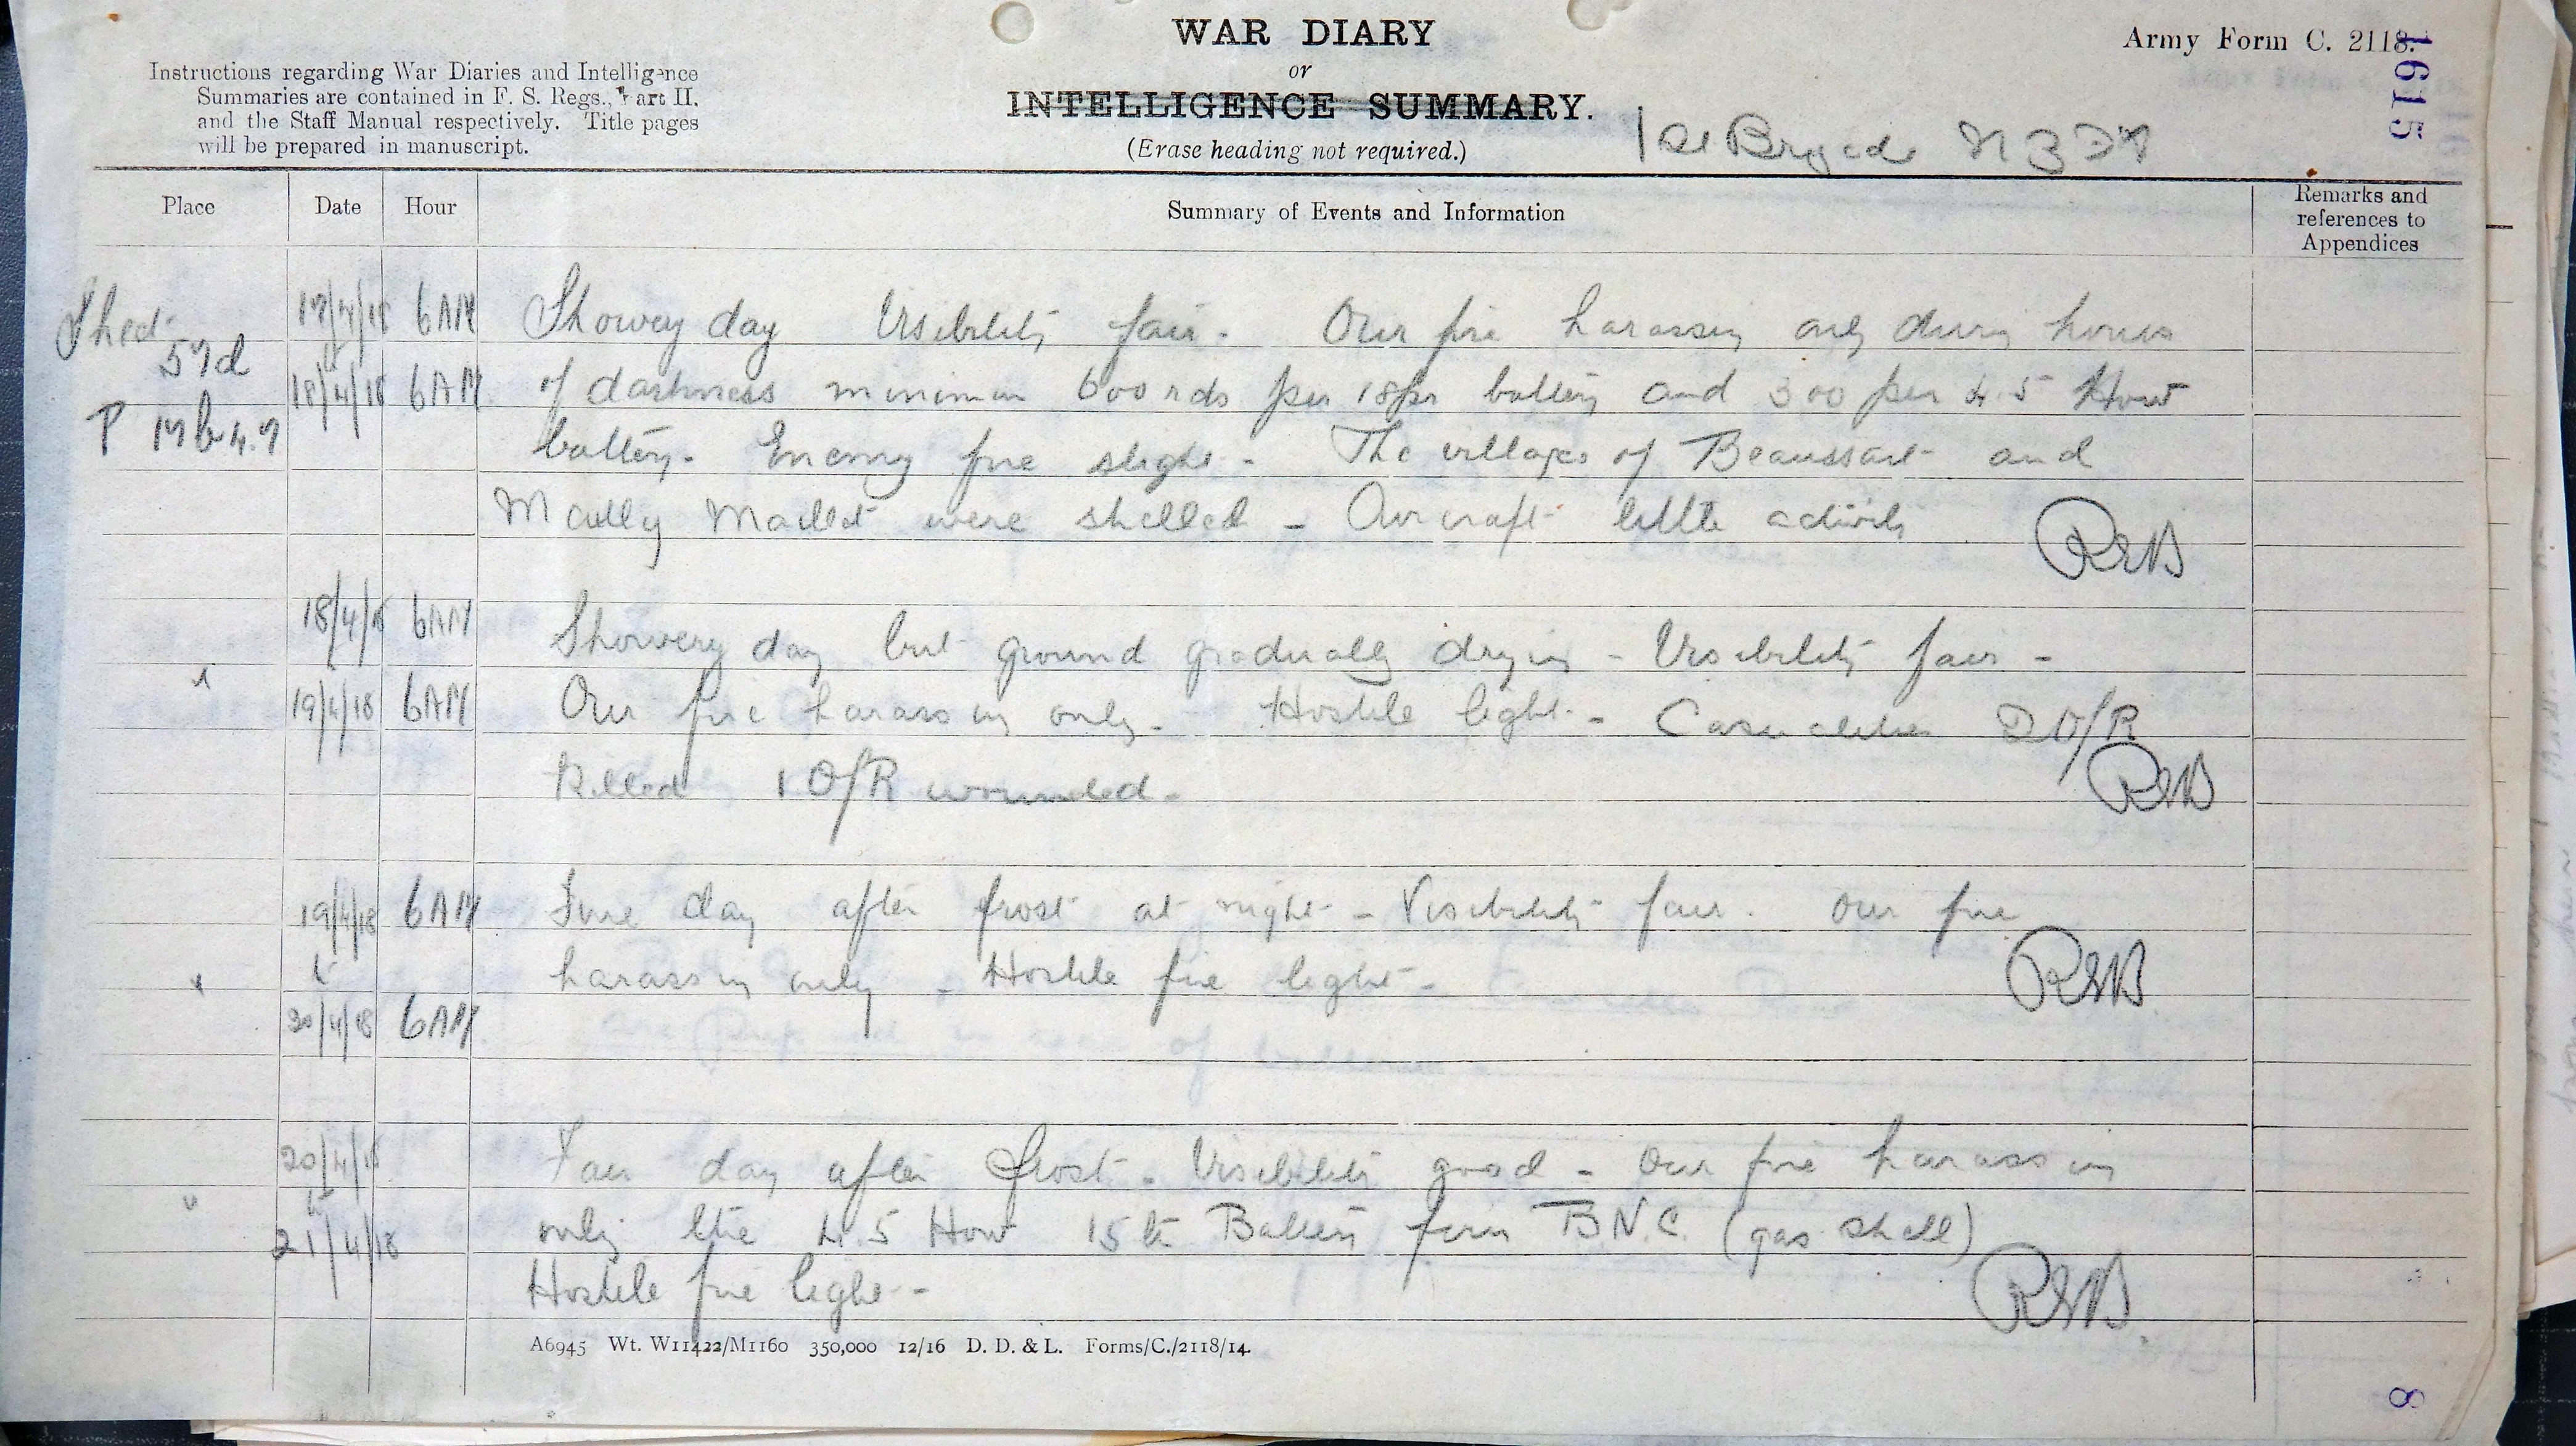 WAR DIARY
or
INTELLIGENCE SUMMARY.
(Erase heading not required.)
Army Form C. 2118.
1615
Instructions regarding War Diaries and Intelligence
Summaries are contained in F. S. Regs., Part II.
and the Staff Manual respectively. Title pages
will be prepared in manuscript.
1st Brigade NZFA
Place Date Hour Summary of Events and Information Remarks and
references to
Appendices
Sheet 17/4/18 6AM Showey day Visibility fair. Our fire harassing only during hours
57d to
18/4/18 6AM of darkness minimum 600 rds per 18pr battery and 300 per 4.5 How
P 17b4.7 battery. Enemy fire slight - The villages of Beaussart and
Mailly Maillet were shelled - Aircraft little activity RSB
18/4/18 6AM Showery day but ground gradually drying - Visibility fair -
" 19/4/18 6AM Our fire harassing only. Hostile light - Casualties 2 O/R
killed 1 O/R wounded - RSB
19/4/18 6AM Fine day after frost at night - Visibility fair. Our fire
" to harassing only - Hostile fire light - RSB
20/4/18 6AM
20/4/18 Fair day after frost - Visibility good - Our fire harassing
" to
21/4/18 only the 4.5 How 15th Battery fired B.N.C. (gas shell)
Hostile fire light - RSB.
A6945 Wt. W11422/M1160 350,000 12/16 D. D. & L. Forms/C./2118/14.
8